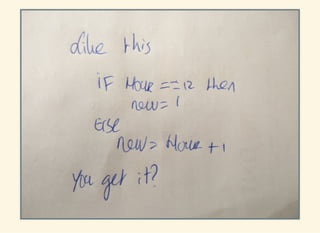 Like this
IF Hour == 12 then
new = 1
Else
new = Hour + 1
You get it?